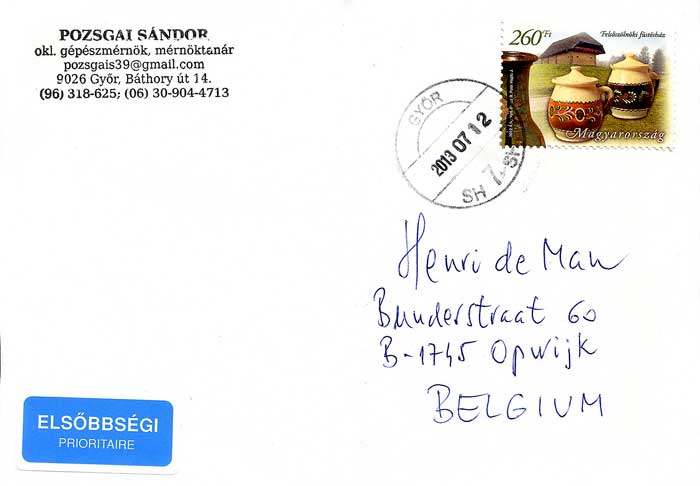 POZSGAI SÁNDOR
okl. gépészmérnök, mérnöktanár
pozsgais39@gmail.com
9026 Győr, Báthory út 14.
(96) 318-625; (06) 30-904-4713
260Ft
Felsőszölnöki füstösház
Magyarország
GYŐR
2013 07 12
SH 7 SH
Henri de Man
Bunderstraat 60
B-1745 Opwijk
BELGIUM
ELSŐBBSÉGI
PRIORITAIRE